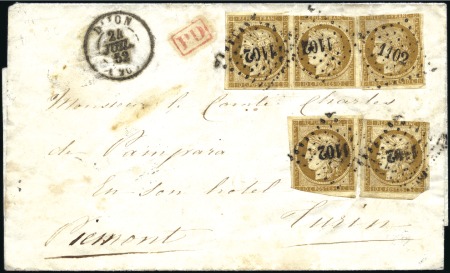 DIJON
P.D.
24
JUIL.
52
1102
1102
1102
1102
1102
Monsieur le Comte Charles
de Pampara
En son hôtel
Piemont
Turin